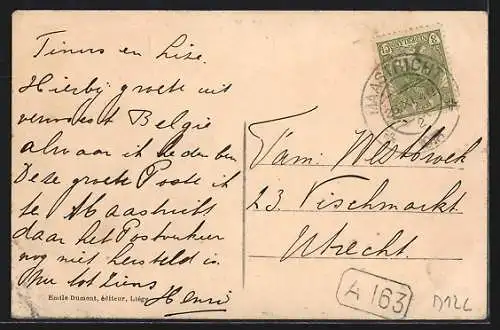 Tinus en Lize.
Hierbij groete uit
verwoest Belgie
alwaar ik heden ben
Deze groete Poste ik
te Maastricht
daar het Postverkeer
nog niet hersteld is.
Nu tot ziens
Henri
Emile Dumont, éditeur, Liége
MAASTRICHT
Fam: Westbroek
23. Vischmarkt.
Utrecht.
A 163
D126